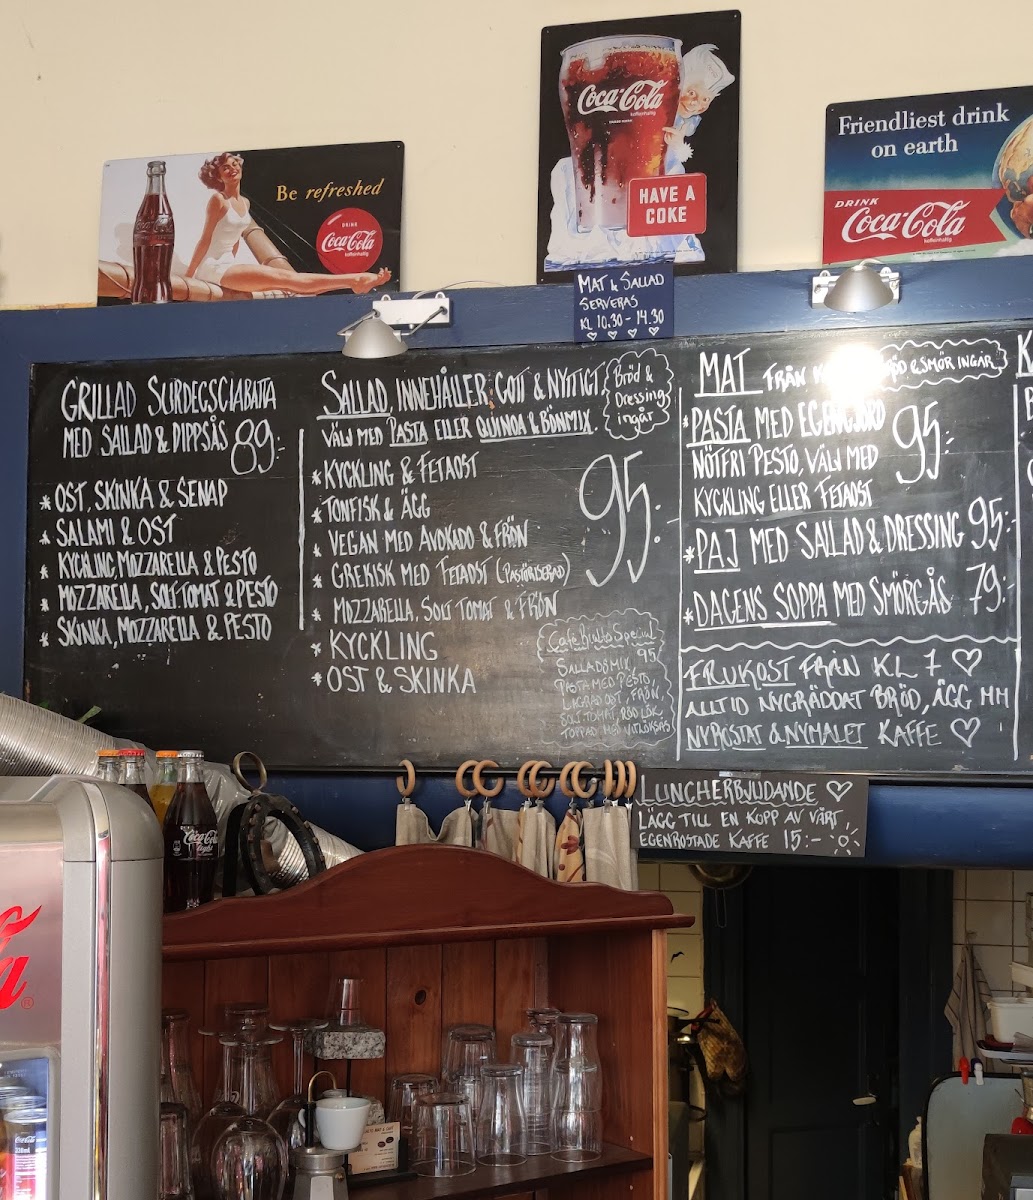 Be refreshed
DRINK
Coca-Cola
koffeinhaltig
Coca-Cola
koffeinhaltig
HAVE A
COKE
Friendliest drink
on earth
DRINK
Coca-Cola
koffeinhaltig
MAT & SALLAD
SERVERAS
KL 10.30 - 14.30
GRILLAD SURDEGSCIABATTA
MED SALLAD & DIPPSÅS 89:-
* OST, SKINKA & SENAP
* SALAMI & OST
* KYCKLING, MOZZARELLA & PESTO
* MOZZARELLA, SOLT.TOMAT & PESTO
* SKINKA, MOZZARELLA & PESTO
SALLAD, INNEHÅLLER: GOTT & NYTTIGT
VÄLJ MED PASTA ELLER QUINOA & BÖNMIX.
Bröd &
Dressing
ingår
* KYCKLING & FETAOST
* TONFISK & ÄGG
* VEGAN MED AVOKADO & FRÖN
* GREKISK MED FETAOST (PASTÖRISERAD)
* MOZZARELLA, SOLT TOMAT & FRÖN
* KYCKLING
* OST & SKINKA
95:-
Special
95
SALLADSMIX,
PASTA MED PESTO,
LAGRAD OST, FRÖN,
SOLT.TOMAT, RÖD LÖK,
TOPPAD MED VITLÖKSÅS
MAT FRÅN & SMÖR INGÅR
* PASTA MED EGENGJORD
NÖTFRI PESTO, VÄLJ MED
KYCKLING ELLER FETAOST
95:-
* PAJ MED SALLAD & DRESSING 95:-
* DAGENS SOPPA MED SMÖRGÅS 79:-
FRUKOST FRÅN KL 7 ♡
ALLTID NYGRÄDDAT BRÖD, ÄGG MM
NYROSTAT & NYMALET KAFFE ♡
LUNCHERBJUDANDE ♡
LÄGG TILL EN KOPP AV VÅRT
EGENROSTADE KAFFE 15:-
Coca-Cola
light